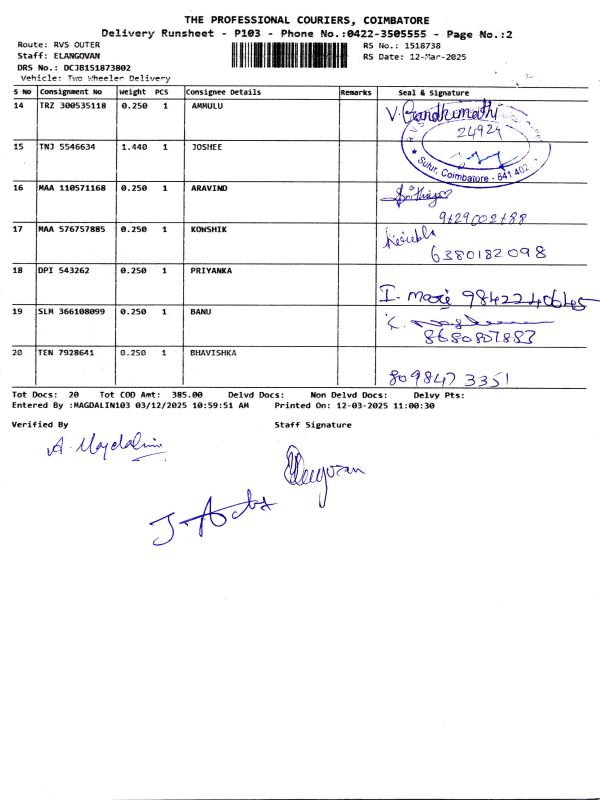 THE PROFESSIONAL COURIERS, COIMBATORE
Delivery Runsheet - P103 - Phone No.:0422-3505555 - Page No.:2
Route: RVS OUTER RS No.: 1518738
Staff: ELANGOVAN RS Date: 12-Mar-2025
DRS No.: DCJB151873802
Vehicle: Two Wheeler Delivery
S No Consignment No Weight PCS Consignee Details Remarks Seal & Signature
14 TRZ 300535118 0.250 1 AMMULU V. Gandhimathi
24924
15 TNJ 5546634 1.440 1 JOSHEE
Sulur, Coimbatore - 641 402
16 MAA 110571168 0.250 1 ARAVIND
9629002788
17 MAA 576757885 0.250 1 KOWSHIK
6380182098
18 DPI 543262 0.250 1 PRIYANKA
I. Marie 9842240645
19 SLM 366108099 0.250 1 BANU K.
8680807883
20 TEN 7928641 0.250 1 BHAVISHKA
809847 3351
Tot Docs: 20 Tot COD Amt: 385.00 Delvd Docs: Non Delvd Docs: Delvy Pts:
Entered By :MAGDALIN103 03/12/2025 10:59:51 AM Printed On: 12-03-2025 11:00:30
Verified By Staff Signature
A. Magdalin
Elangovan